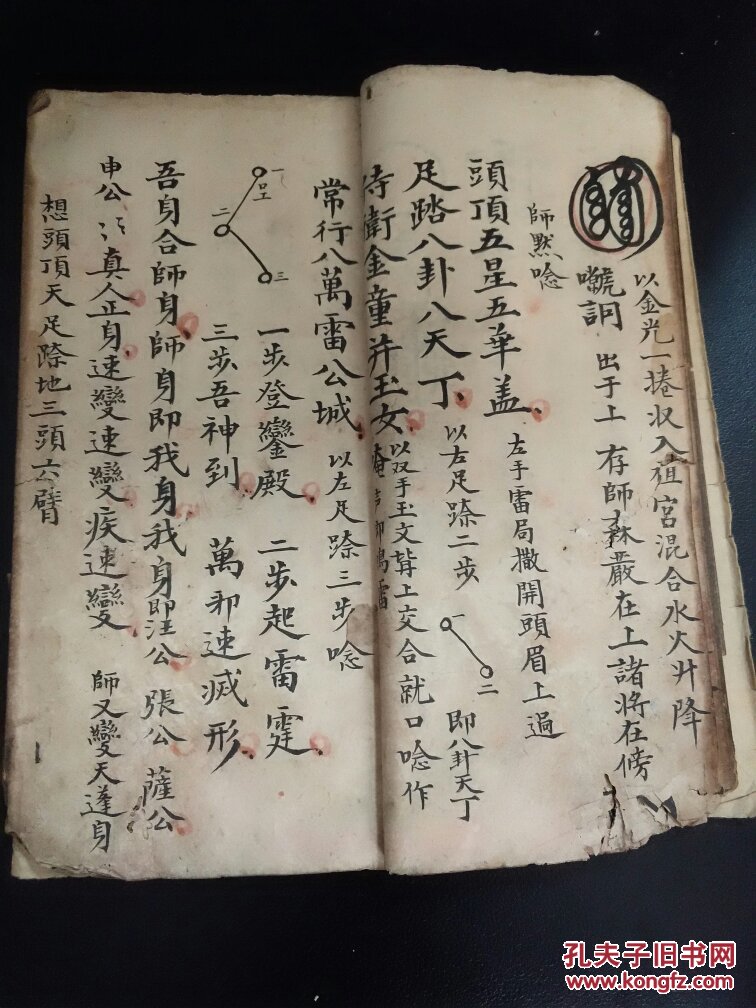 以金光一捲収入祖宮混合水火升降
出于上 存師森嚴在上諸將在傍
師默唸
頭頂五星五華盖
左手雷局撒開頭眉上過
足踏八卦八天丁
以右足跡二步
一
二
即八卦天丁
侍衛金童并玉女
以双手玉文聳上交合就口唸作
常行八萬雷公城
以左足跡三步唸
一
二
三
一步登鑾殿 二步起雷霆
三步吾神到 萬邪速滅形
吾身合師身師身即我身我身即汪公 張公 薩公
申公 真人正身速變速變疾速變 師又變天蓬身
想頭頂天足跡地三頭六臂
孔夫子旧书网
www.kongfz.com